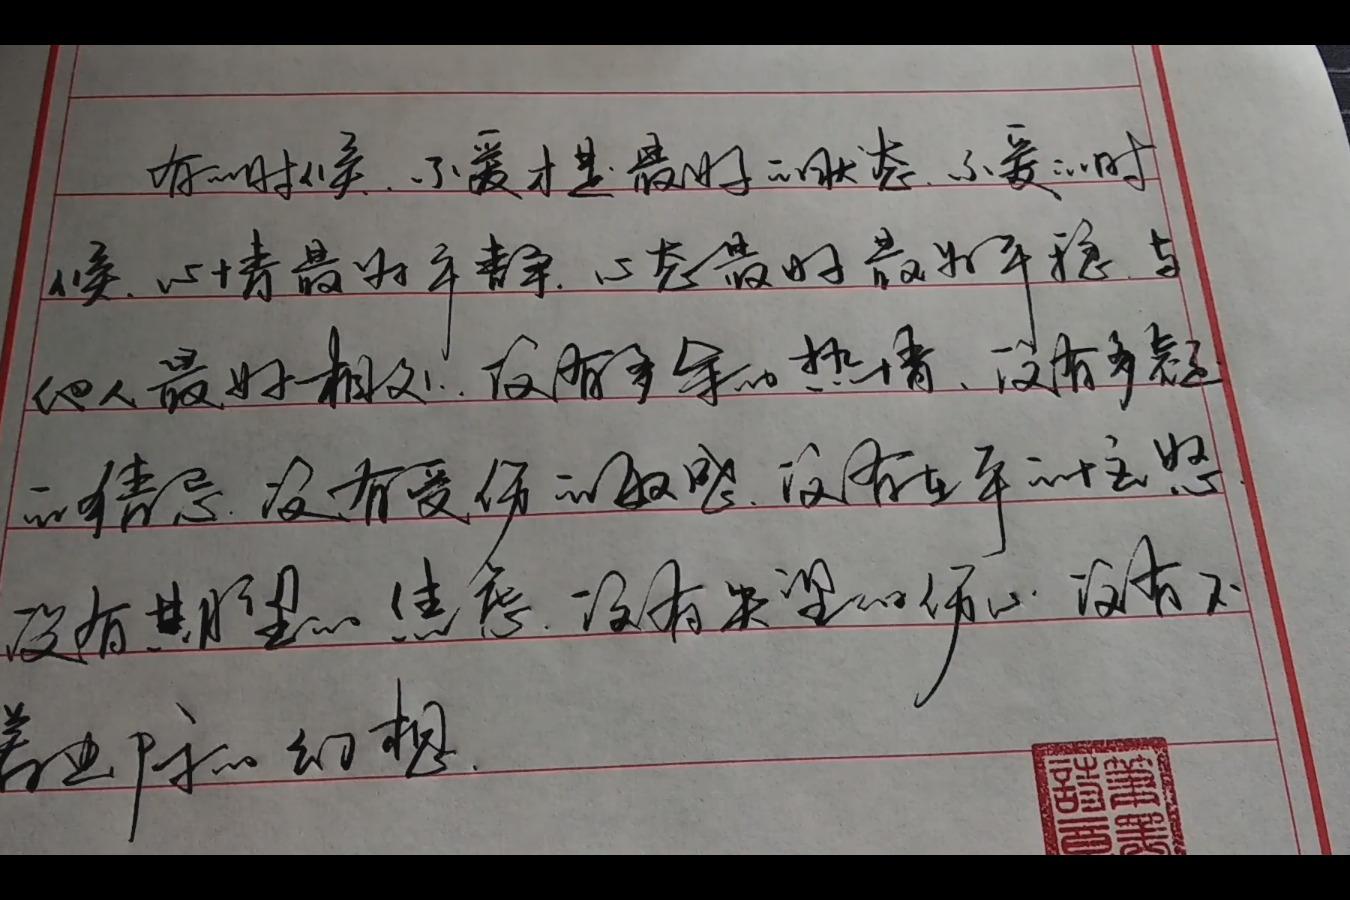 有的时候.不爱才是最好的状态.不爱的时
候.心情最好平静.心态最好最好平稳.与
他人最好相处.没有多余的热情、没有多疑
的猜忌.没有受伤的敏感.没有在乎的怪怒.
没有期望的焦虑.没有失望的伤心.没有不
着边际的幻想.